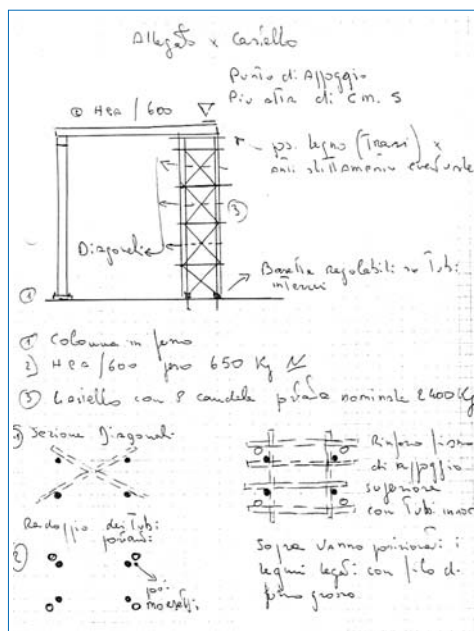 Allegato x Castello
Punto di Appoggio
Più alta di cm. 5
② HEA/600
ps. legno (Travi) x
anti slittamento eventuale
③
Diagonali
Basetta regolabili su Tubi
interni
①
① Colonna in ferro
2) HEA/600 peso 650 Kg
③ Castello con 8 candele portata nominale 2400 Kg
1) Sezione Diagonali
Rinforzo piano
di appoggio
superiore
con Tubi
Raddoppio dei Tubi
portanti
2)
più
morsetti
Sopra vanno posizionati i
legni legati con filo di
ferro grosso